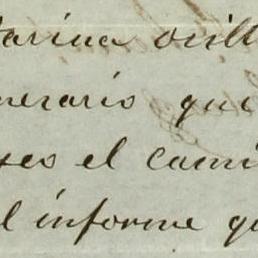 arina orill
nerario que
seo el cami
l informe qu